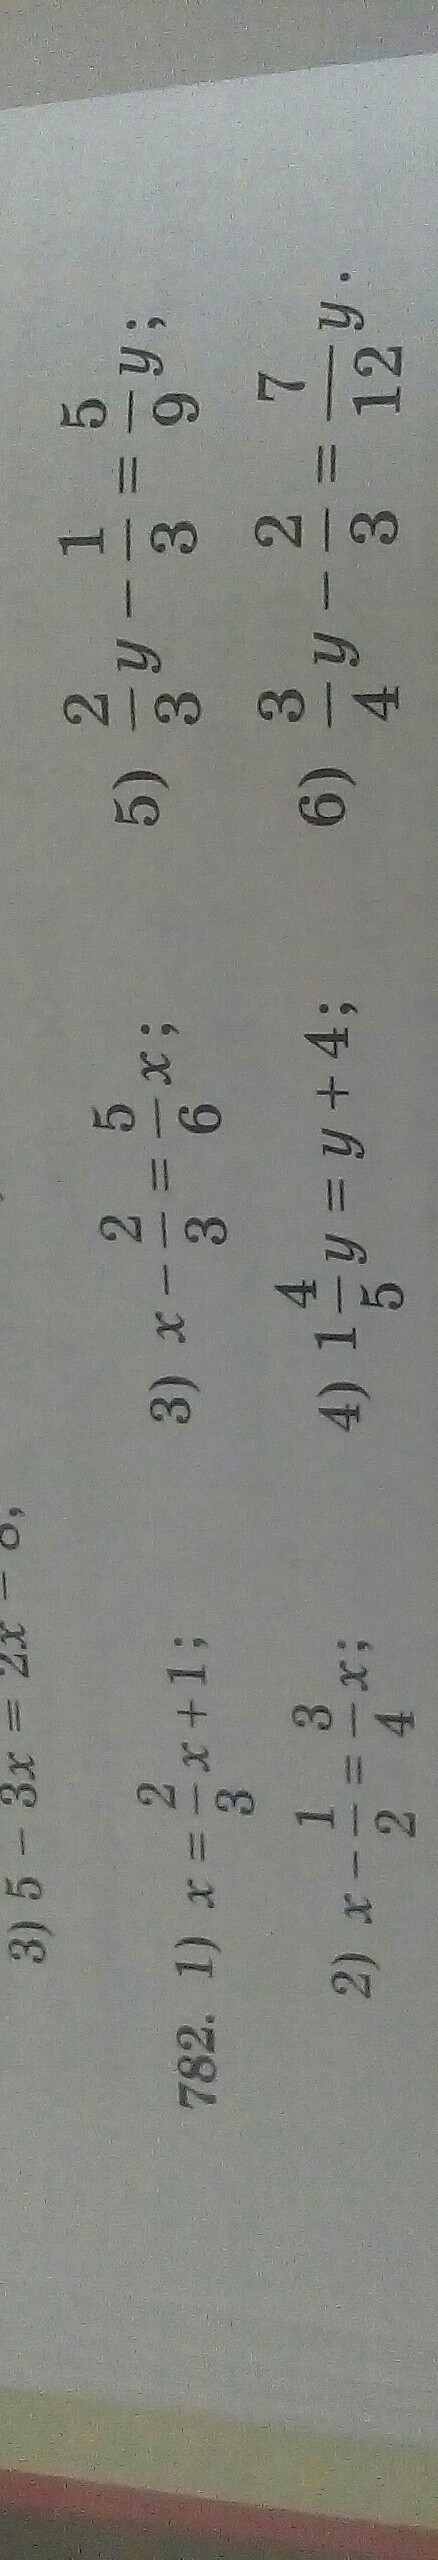 3) 5 − 3x = 2x −
782. 1) x = 2/3 x + 1; 3) x − 2/3 = 5/6 x; 5) 2/3 y − 1/3 = 5/9 y;
2) x − 1/2 = 3/4 x; 4) 1 4/5 y = y + 4; 6) 3/4 y − 2/3 = 7/12 y.